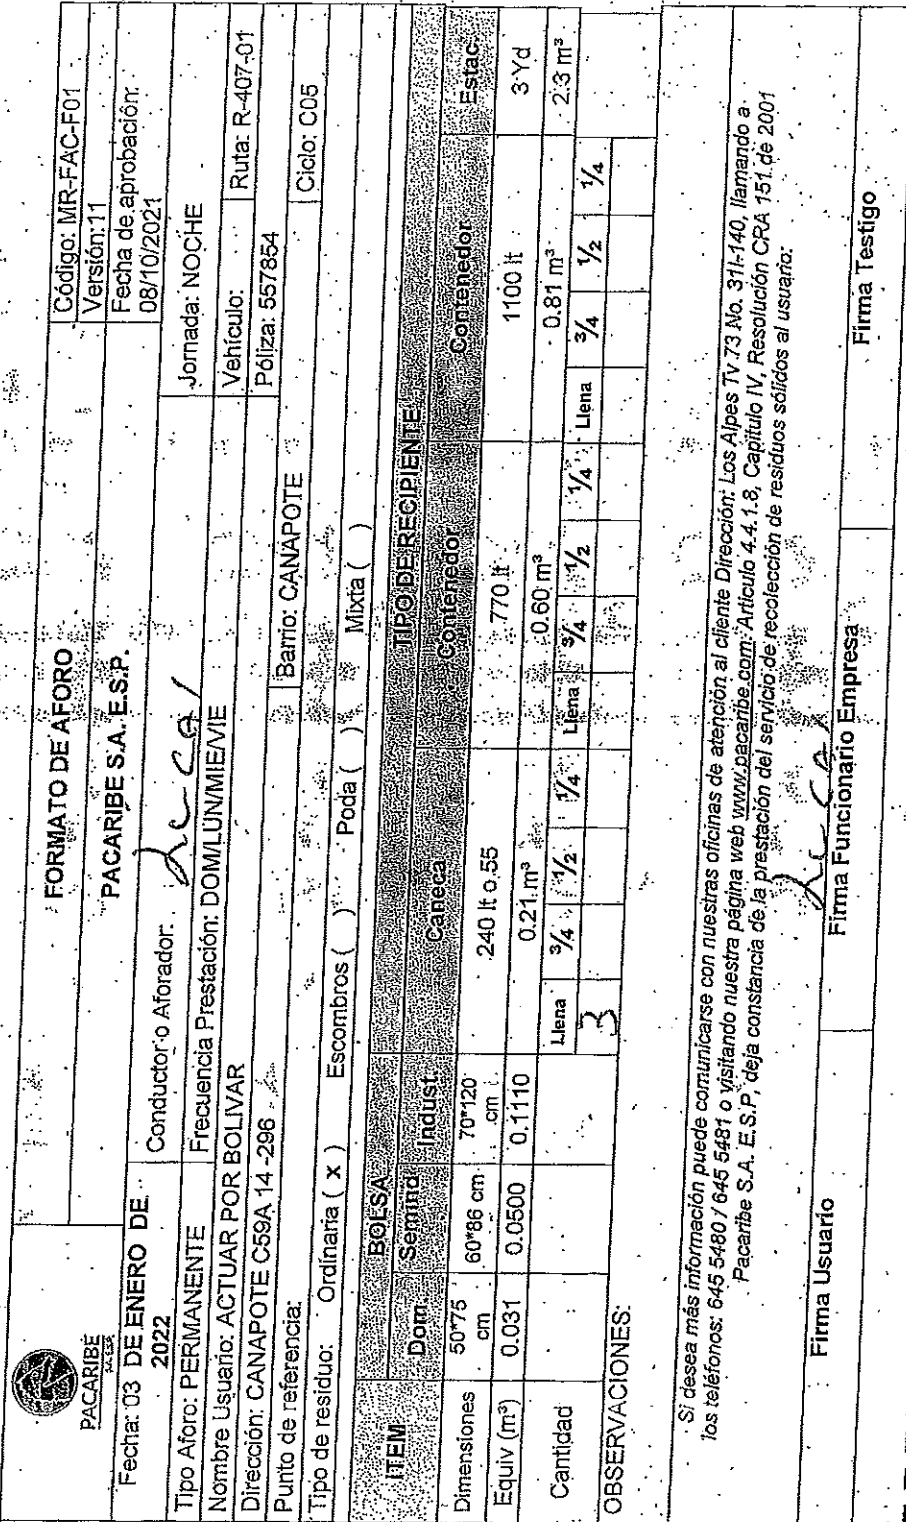 PACARIBE
S.A. E.S.P.
FORMATO DE AFORO
PACARIBE S.A. E.S.P.
Código: MR-FAC-F01
Versión:11
Fecha de aprobación:
08/10/2021
Fecha: 03 DE ENERO DE
2022
Conductor o Aforador:
Jornada: NOCHE
Tipo Aforo: PERMANENTE
Frecuencia Prestación: DOM/LUN/MIE/VIE
Nombre Usuario: ACTUAR POR BOLIVAR
Vehículo:
Ruta: R-407-01
Dirección: CANAPOTE C59A 14 -296
Póliza: 557854
Punto de referencia:
Barrio: CANAPOTE
Ciclo: C05
Tipo de residuo: Ordinaria ( x ) Escombros ( ) Poda ( ) Mixta ( )
ITEM BOLSA TIPO DE RECIPIENTE
Dom Semind Indust. Caneca Contenedor Contenedor Estac.
Dimensiones 50*75 cm 60*86 cm 70*120 cm 240 lt o 55 770 lt 1100 lt 3 Yd
Equiv (m³) 0.031 0.0500 0.1110 0.21 m³ 0.60 m³ 0.81 m³ 2.3 m³
Cantidad Llena 3/4 1/2 1/4 Llena 3/4 1/2 1/4 Llena 3/4 1/2 1/4
3
OBSERVACIONES:
Si desea más información puede comunicarse con nuestras oficinas de atención al cliente Dirección: Los Alpes Tv 73 No. 31I-140, llamando a
los teléfonos: 645 5480 / 645 5481 o visitando nuestra página web www.pacaribe.com. Artículo 4.4.1.8, Capítulo IV, Resolución CRA 151 de 2001
Pacaribe S.A. E.S.P, deja constancia de la prestación del servicio de recolección de residuos sólidos al usuario:
Firma Usuario
Firma Funcionario Empresa
Firma Testigo